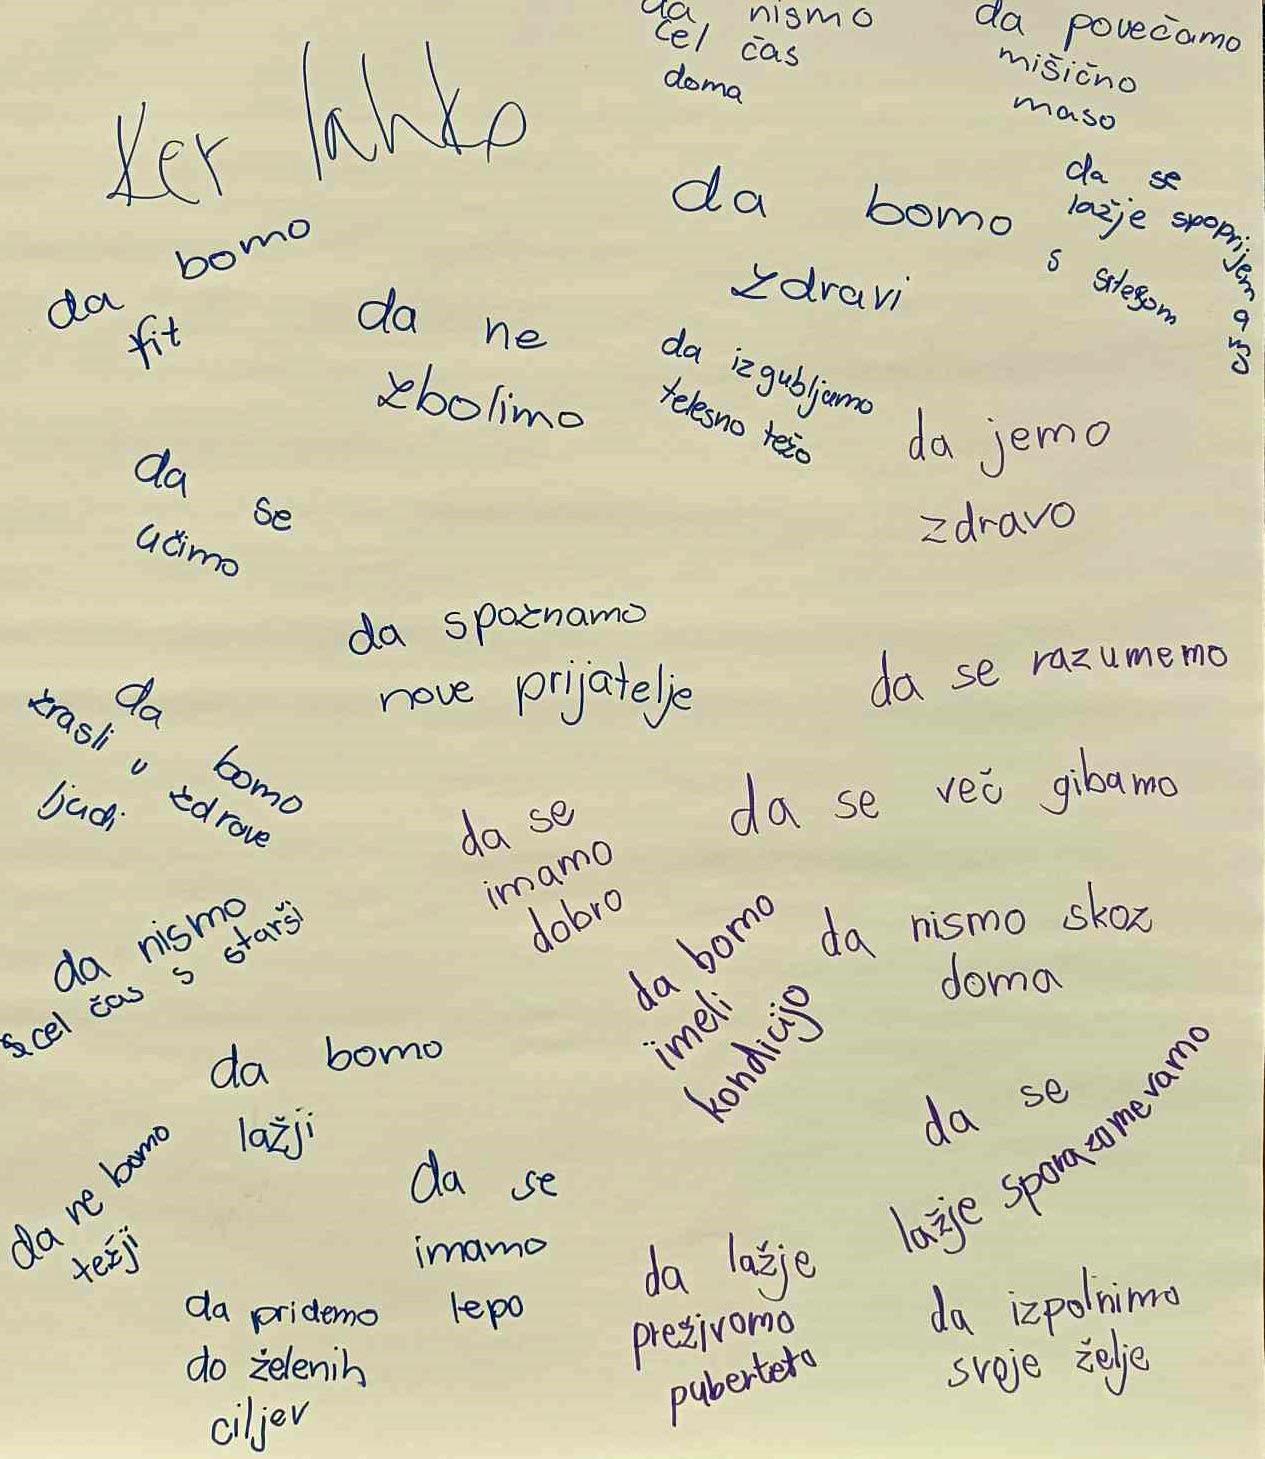 da nismo
cel čas
doma
da povečamo
mišično
maso
Ker lahko
da bomo
fit
da ne
zbolimo
da bomo
zdravi
da se
lažje spoprijemamo
s stresom
da izgubljamo
telesno težo
da jemo
zdravo
da se
učimo
da spoznamo
nove prijatelje
da se razumemo
da bomo
zrasli v zdrave
ljudi
da se
imamo
dobro
da se več gibamo
da nismo
cel čas s starši
da bomo
imeli
kondicijo
da nismo skoz
doma
da bomo
lažji
da se
lažje sporazomevamo
da ne bomo
težji
da se
imamo
lepo
da lažje
preživomo
puberteto
da pridemo
do želenih
ciljev
da izpolnimo
svoje želje